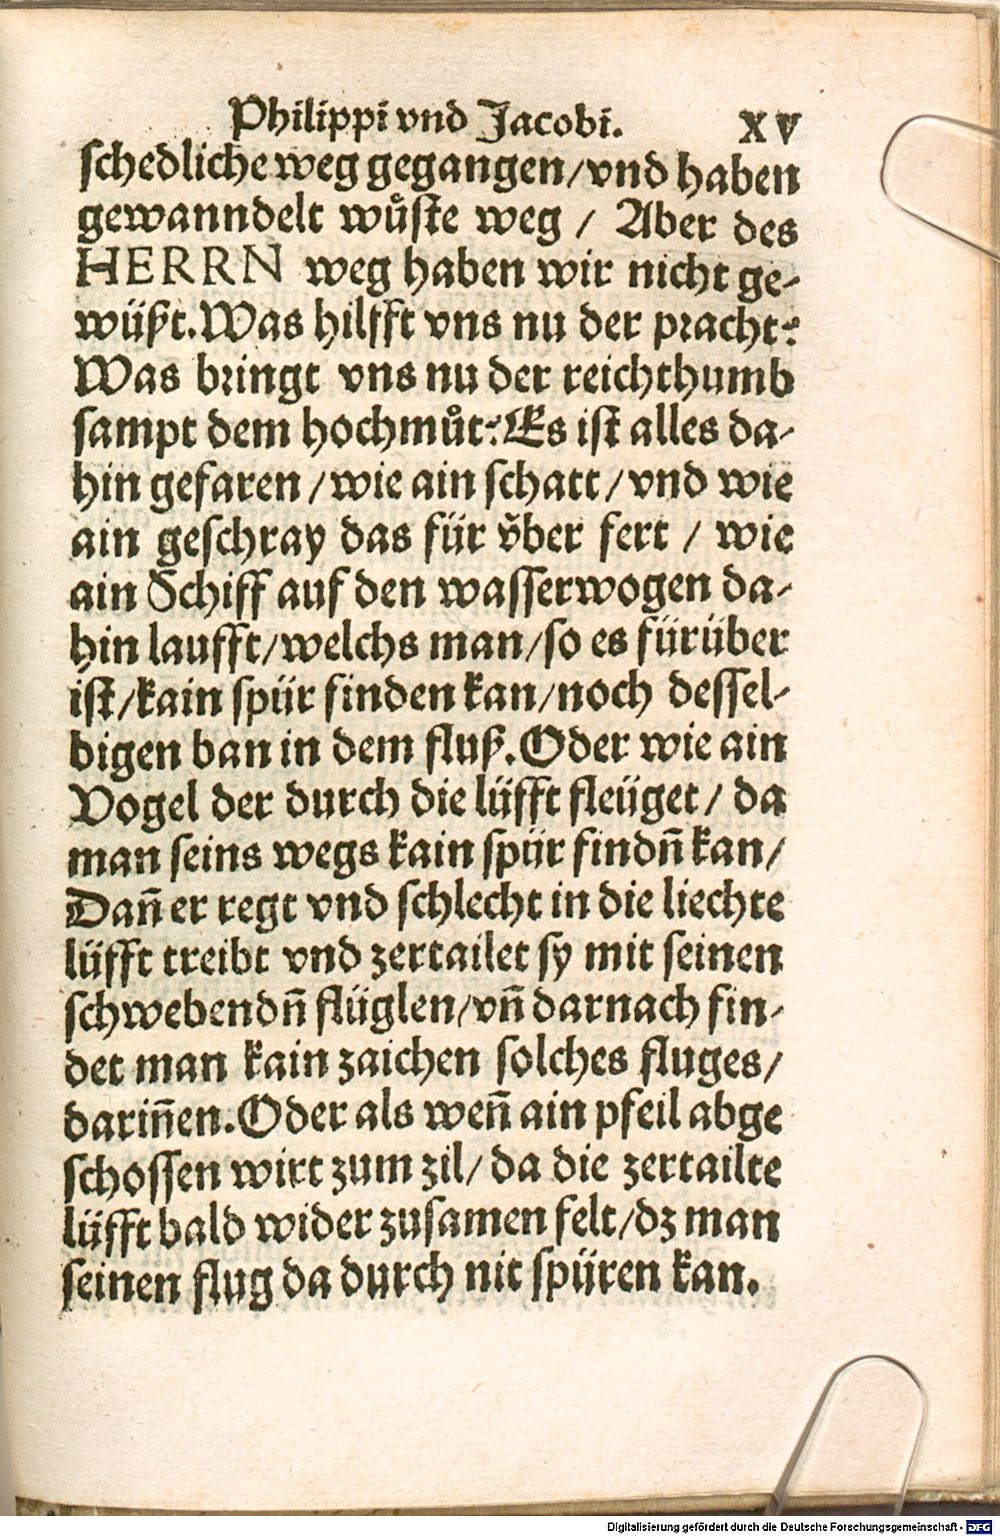 Philippi vnd Jacobi. XV
schedliche weg gegangen/vnd haben
gewanndelt wuͤste weg / Aber des
HERRN weg haben wir nicht ge-
wüßt. Was hilfft vns nu der pracht?
Was bringt vns nu der reichthumb
sampt dem hochmuͦt? Es ist alles da-
hin gefaren / wie ain schatt / vnd wie
ain geschray das für v̈ber fert / wie
ain Schiff auf den wasserwogen da-
hin laufft/welchs man/so es fürüber
ist/kain spür finden kan/noch dessel-
bigen ban in dem fluß. Oder wie ain
Vogel der durch die lüfft fleüget / da
man seins wegs kain spür findn̄ kan/
Dan̄ er regt vnd schlecht in die liechte
lüfft treibt vnd zertailet sy mit seinen
schwebendn̄ flüglen/vn̄ darnach fin-
det man kain zaichen solches fluges/
darin̄en. Oder als wen̄ ain pfeil abge
schossen wirt zum zil/ da die zertailte
lüfft bald wider zusamen felt/dz man
seinen flug da durch nit spüren kan.
Digitalisierung gefördert durch die Deutsche Forschungsgemeinschaft - DFG